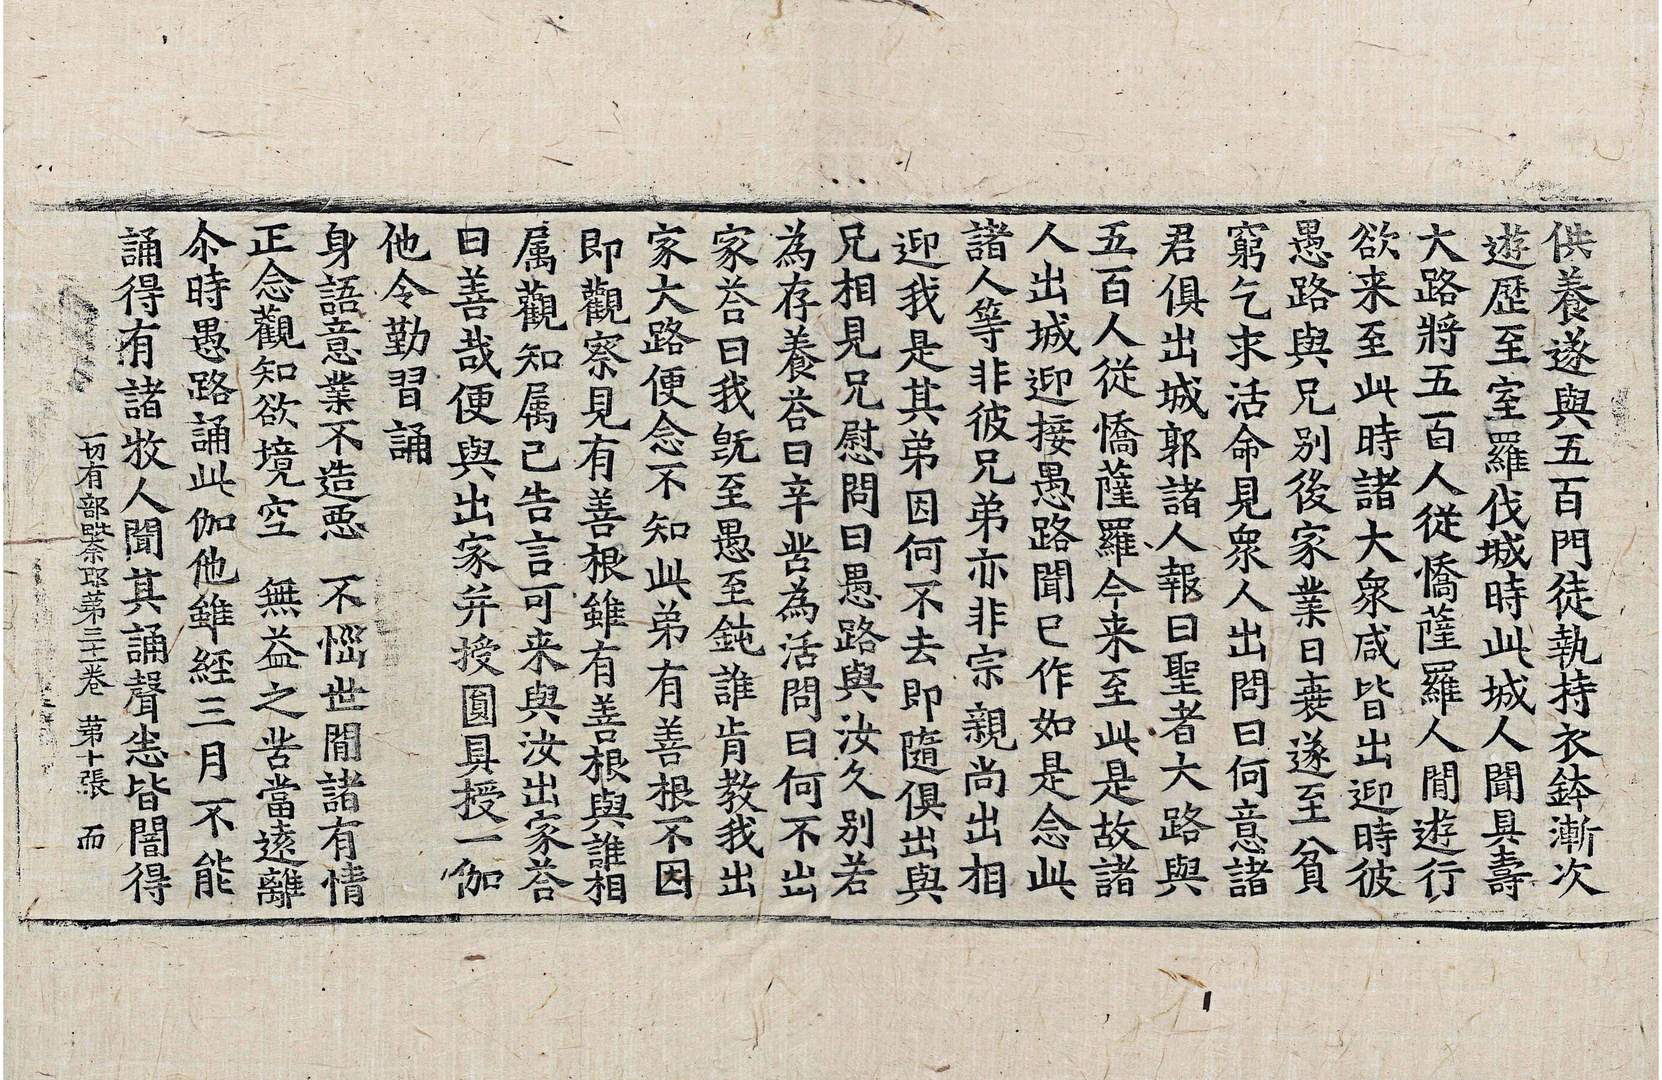 供養遂與五百門徒執持衣鉢漸次
遊歷至室羅伐城時此城人聞具壽
大路將五百人從憍薩羅人間遊行
欲来至此時諸大衆咸皆出迎時彼
愚路與兄別後家業日衰遂至貧
窮乞求活命見衆人出問曰何意諸
君俱出城郭諸人報曰聖者大路與
五百人從憍薩羅今来至此是故諸
人出城迎接愚路聞已作如是念此
諸人等非彼兄弟亦非宗親尚出相
迎我是其弟因何不去即隨俱出與
兄相見兄慰問曰愚路與汝久別若
為存養荅曰辛苦為活問曰何不出
家荅曰我旣至愚至鈍誰肯教我出
家大路便念不知此弟有善根不因
即觀察見有善根雖有善根與誰相
属觀知属己告言可来與汝出家荅
曰善哉便與出家并授圓具授一伽
他令勤習誦
身語意業不造惡　不惱世間諸有情
正念觀知欲境空　無益之苦當遠離
尒時愚路誦此伽他雖經三月不能
誦得有諸牧人聞其誦聲悉皆闇得
一切有部毗奈耶苐三十一卷　苐十張　而